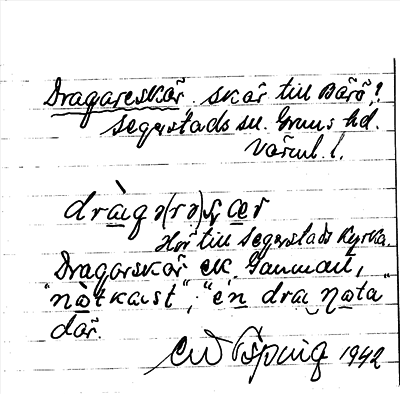 Dragareskär. skär till Bärö!
Segerstads sn. Grums hd.
Värml. l.
dràgə(rə)ʂær
Hör till Segerstads Kyrka.
Dragarskär ek. Gammalt,
"nòtkast", "én dra nota
där.
1942